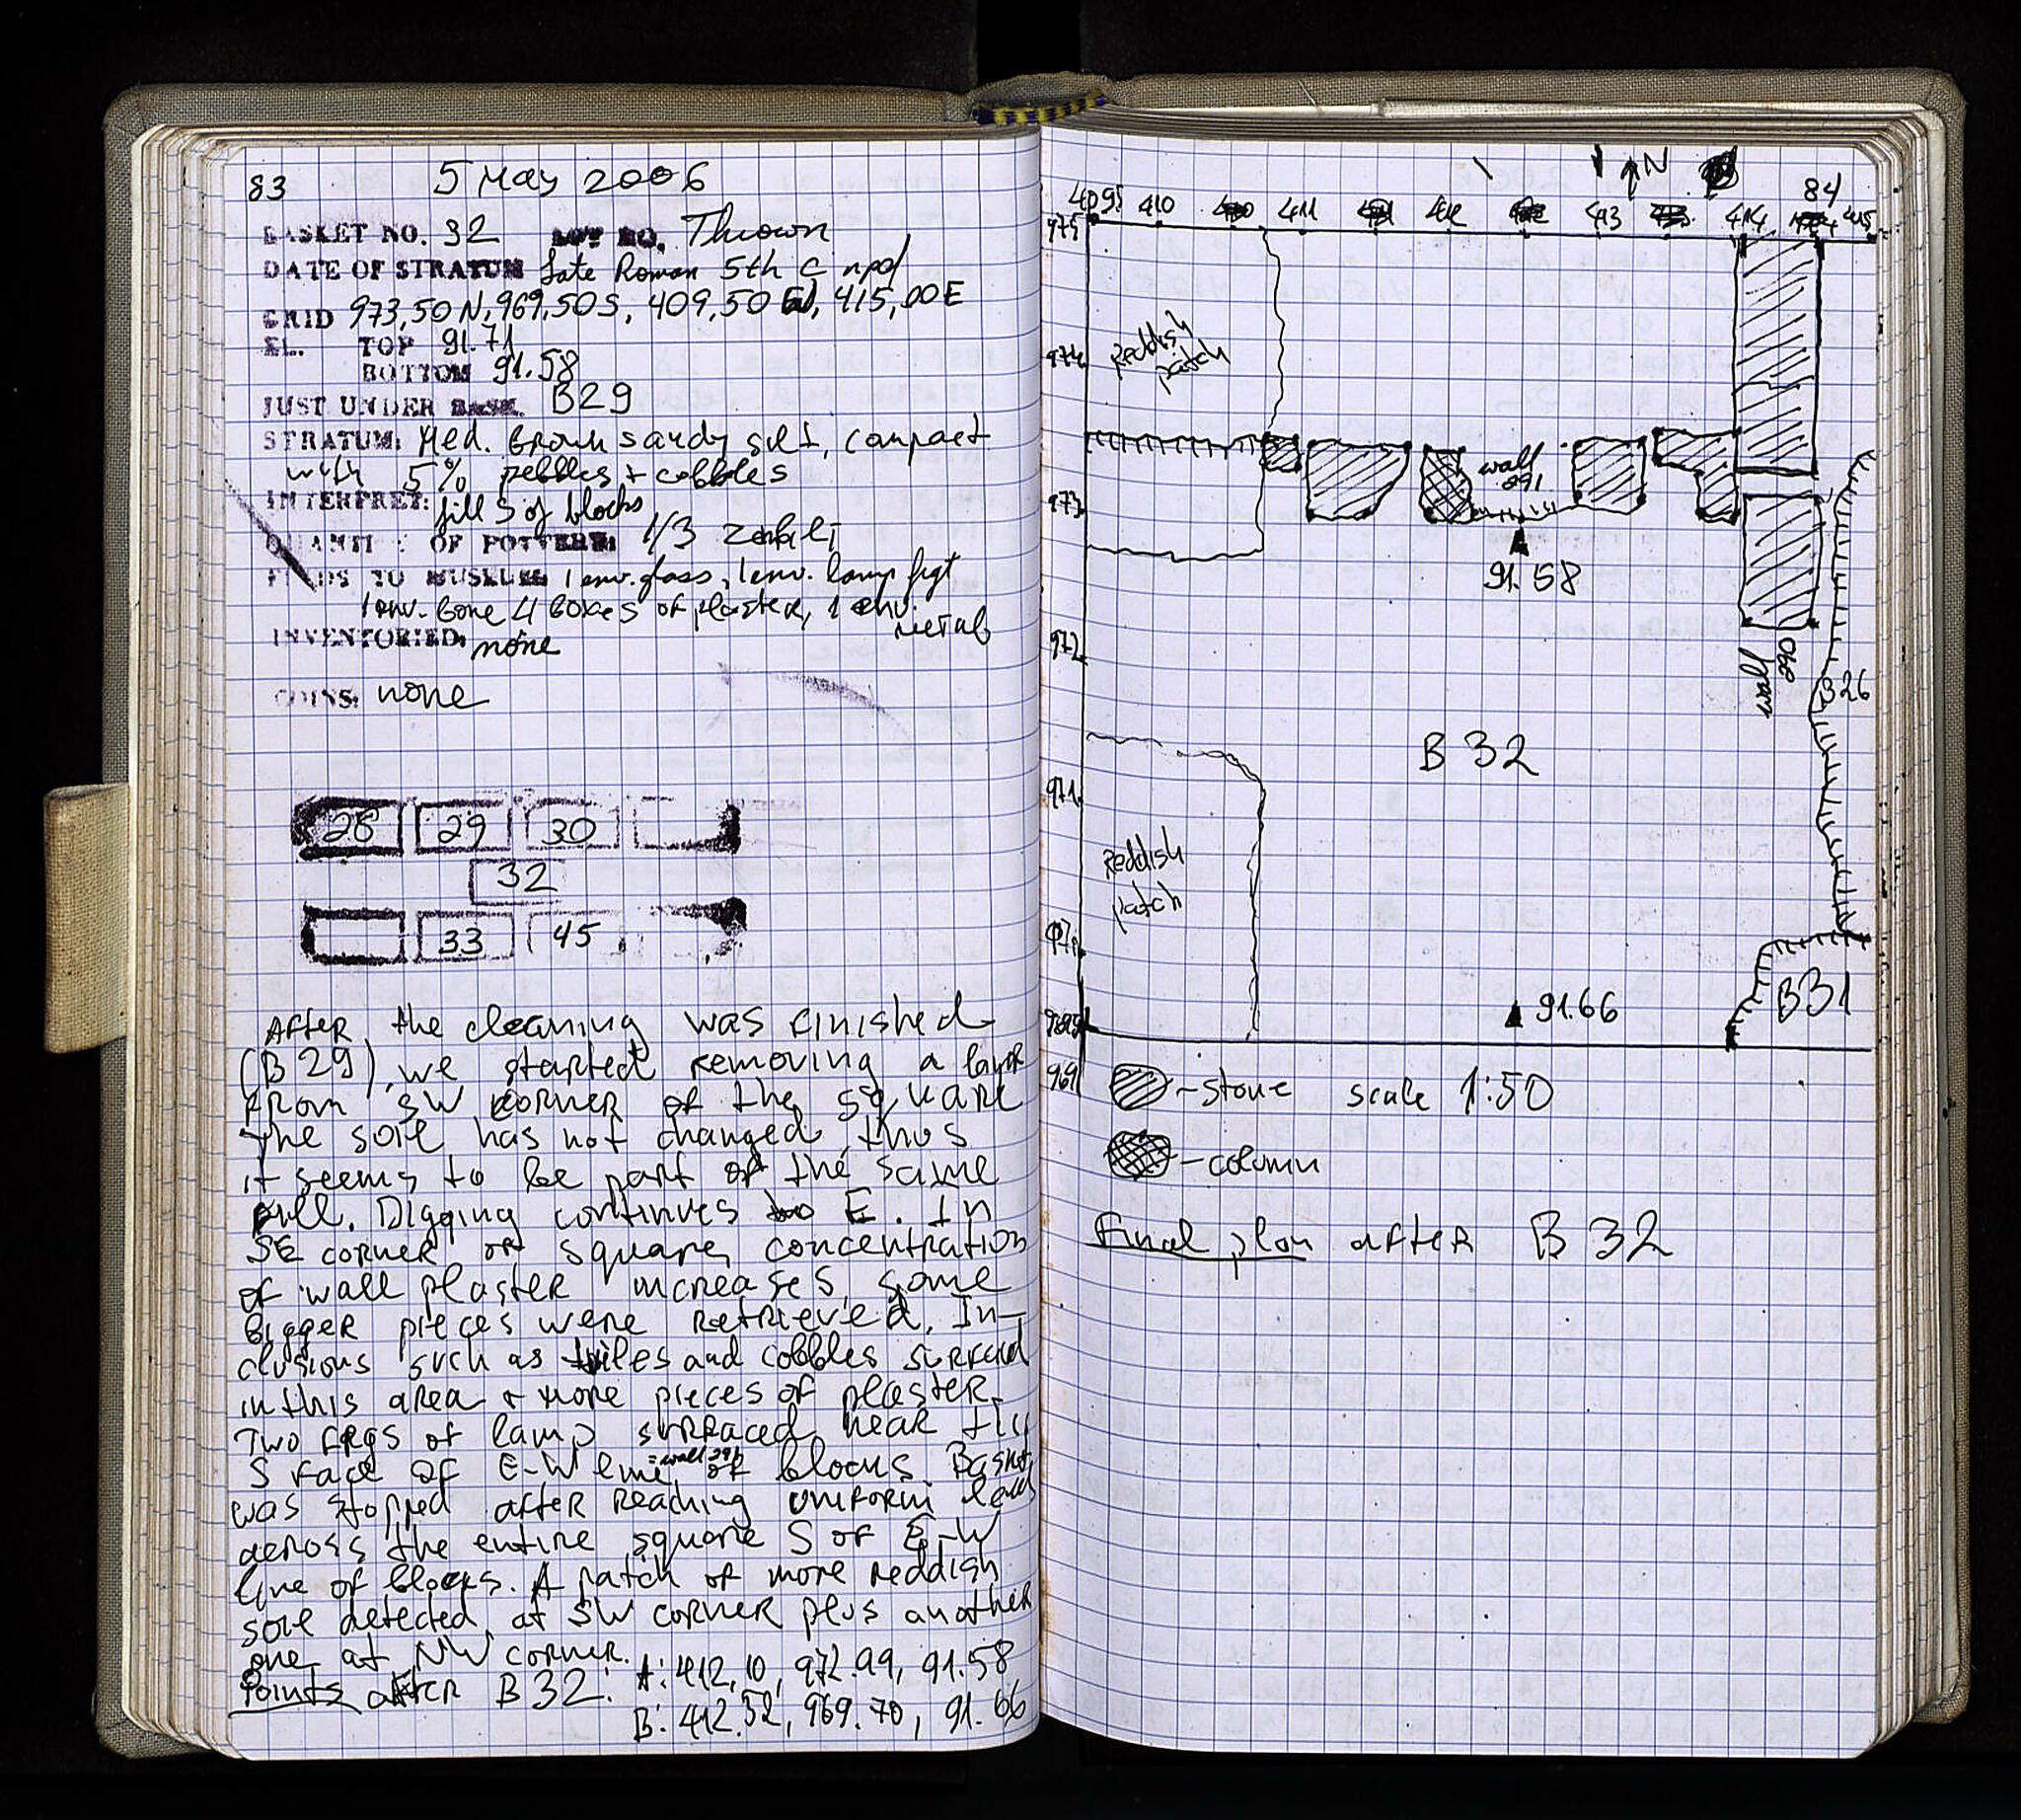 83
5 May 2006
BASKET NO. 32 LOT NO. Thrown
DATE OF STRATUM Late Roman 5th C npd
GRID 973,50 N, 969,50 S, 409,50 W, 415,00 E
EL. TOP 91.71
BOTTOM 91.58
JUST UNDER BASK. B29
STRATUM: Med. brown sandy silt, compact
with 5% pebbles + cobbles
INTERPRET: fill S of blocks
QUANTITY OF POTTERY: 1/3 zembili
FINDS TO MUSEUM: 1 env. glass, 1 env. lamp frgt
1 env. bone 4 boxes of plaster, 1 env. metal
INVENTORIED: none
COINS: none
28 29 30
32
33 45
After the cleaning was finished
(B 29), we started removing a layer
from SW corner of the square
The soil has not changed, thus
it seems to be part of the same
fill. Digging continues to E. In
SE corner of square, concentration
of wall plaster increases, some
bigger pieces were retrieved. In-
clusions such as tiles and cobbles surfaced
in this area + more pieces of plaster.
Two frgs of lamp surfaced near the
S face of E-W line = wall 391 of blocks. Basket
was stopped after reaching uniform levels
across the entire square S of E-W
line of blocks. A patch of more reddish
soil detected at SW corner plus another
one at NW corner.
Points after B 32: A: 412.10, 972.99, 91.58
B: 412.52, 969.70, 91.66
N
84
409.5 410 411 412 413 414 415
975
974
973
972
971
970
969.5
969
Reddish
patch
wall
391
91.58
B26
B 32
Reddish
patch
91.66
B31
- stone scale 1:50
- column
Final plan after B 32